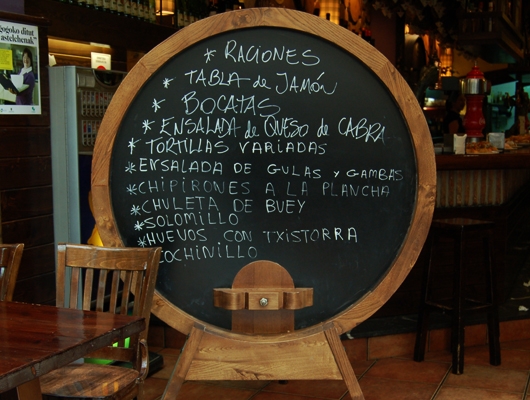 gogoko ditut
astelehenak"
* RACIONES
* TABLA de JAMÓN
* BOCATAS
* ENSALADA de QUESO de CABRA
* TORTILLAS VARIADAS
* ENSALADA DE GULAS Y GAMBAS
* CHIPIRONES A LA PLANCHA
* CHULETA DE BUEY
* SOLOMILLO
* HUEVOS CON TXISTORRA
COCHINILLO